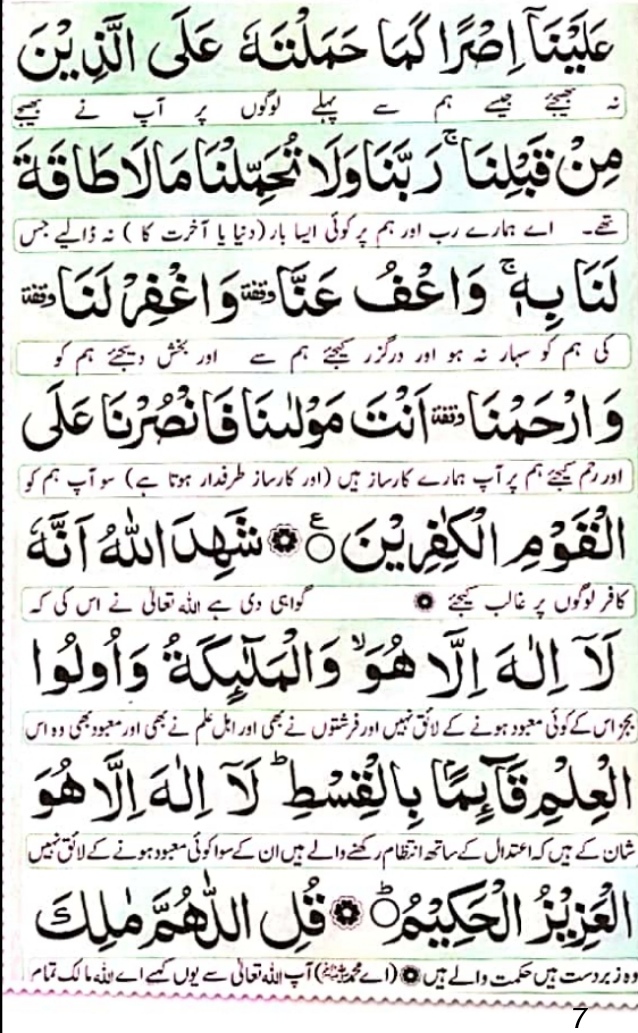 عَلَیْنَاۤ اِصْرًا كَمَا حَمَلْتَهٗ عَلَی الَّذِیْنَ
نہ بھیجئے جیسے ہم سے پہلے لوگوں پر آپ نے بھیجے
مِنْ قَبْلِنَاۚ رَبَّنَا وَلَا تُحَمِّلْنَا مَا لَا طَاقَةَ
تھے۔ اے ہمارے رب اور ہم پر کوئی ایسا بار (دنیا یا آخرت کا) نہ ڈالیے جس
لَنَا بِهٖۚ وَاعْفُ عَنَّا وقفة وَاغْفِرْ لَنَا وقفة
کی ہم کو سہار نہ ہو اور درگزر کیجئے ہم سے اور بخش دیجئے ہم کو
وَارْحَمْنَا وقفة اَنْتَ مَوْلٰىنَا فَانْصُرْنَا عَلَی
اور رحم کیجئے ہم پر آپ ہمارے کارساز ہیں (اور کارساز طرفدار ہوتا ہے) سو آپ ہم کو
الْقَوْمِ الْكٰفِرِیْنَ ع شَهِدَ اللّٰهُ اَنَّهٗ
کافر لوگوں پر غالب کیجئے گواہی دی ہے اللہ تعالیٰ نے اس کی کہ
لَاۤ اِلٰهَ اِلَّا هُوَۙ وَالْمَلٰٓىِٕكَةُ وَاُولُوا
بجز اس کے کوئی معبود ہونے کے لائق نہیں اور فرشتوں نے بھی اور اہل علم نے بھی اور معبود بھی وہ اس
الْعِلْمِ قَآىِٕمًۢا بِالْقِسْطِؕ لَاۤ اِلٰهَ اِلَّا هُوَ
شان کے ہیں کہ اعتدال کے ساتھ انتظام رکھنے والے ہیں ان کے سوا کوئی معبود ہونے کے لائق نہیں
الْعَزِیْزُ الْحَكِیْمُؕ قُلِ اللّٰهُمَّ مٰلِكَ
وہ زبردست ہیں حکمت والے ہیں (اے محمد ﷺ) آپ اللہ تعالیٰ سے یوں کہیے اے اللہ مالک تمام
7